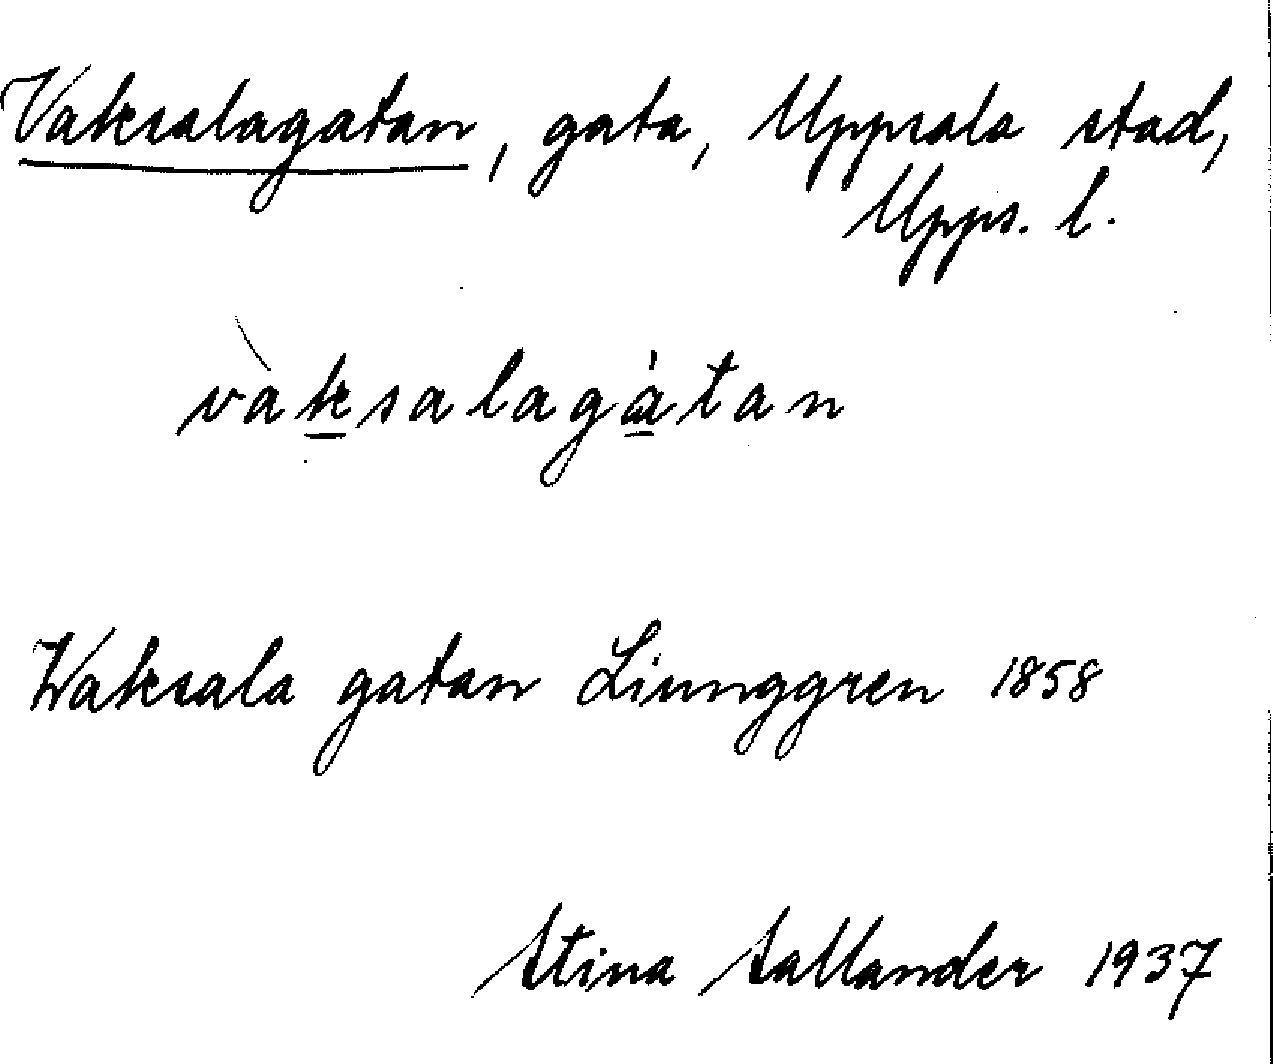 Vaksalagatan, gata, Uppsala stad,
Upps. l.
vàksalagàtan
Waksala gatan Liunggren 1858
Stina Sallander 1937